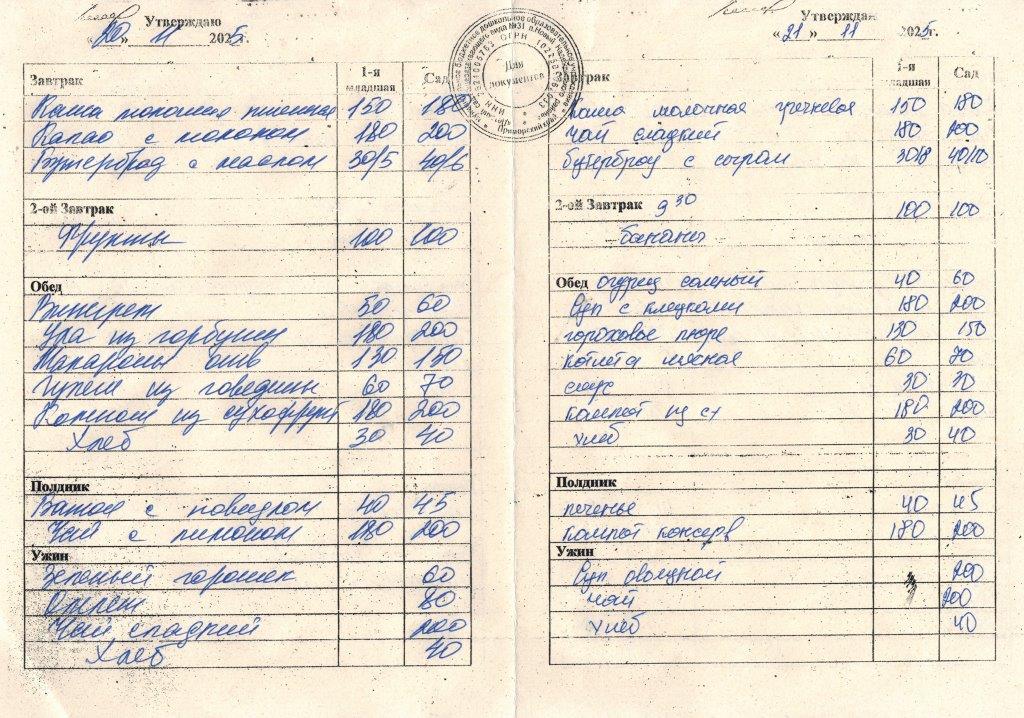 Утверждаю
«20» 11 2025г.
Завтрак 1-я младшая Сад
Каша молочная пшенная 150 180
Какао с молоком 180 200
Бутерброд с маслом 30/5 40/6
2-ой Завтрак
Фрукты 100 100
Обед
Винегрет 50 60
Уха из горбуши 180 200
Макароны отв 130 150
Гуляш из говядины 60 70
Компот из сухофрукт 180 200
Хлеб 30 40
Полдник
Ватрушка с повидлом 40 45
Чай с лимоном 180 200
Ужин
Зеленый горошек 60
Омлет 80
Чай сладкий 200
Хлеб 40
Для документов
Приморский край
Утверждаю
«21» 11 2025г.
Завтрак 1-я младшая Сад
Каша молочная гречневая 150 180
Чай сладкий 180 200
бутерброд с сыром 30/8 40/10
2-ой Завтрак 9 30 100 100
бананы
Обед огурец соленый 40 60
Суп с клецками 180 200
гороховое пюре 130 150
котлета мясная 60 70
соус 30 30
компот из с/ 180 200
хлеб 30 40
Полдник
печенье 40 45
компот консерв 180 200
Ужин
Суп овощной 200
чай 200
хлеб 40